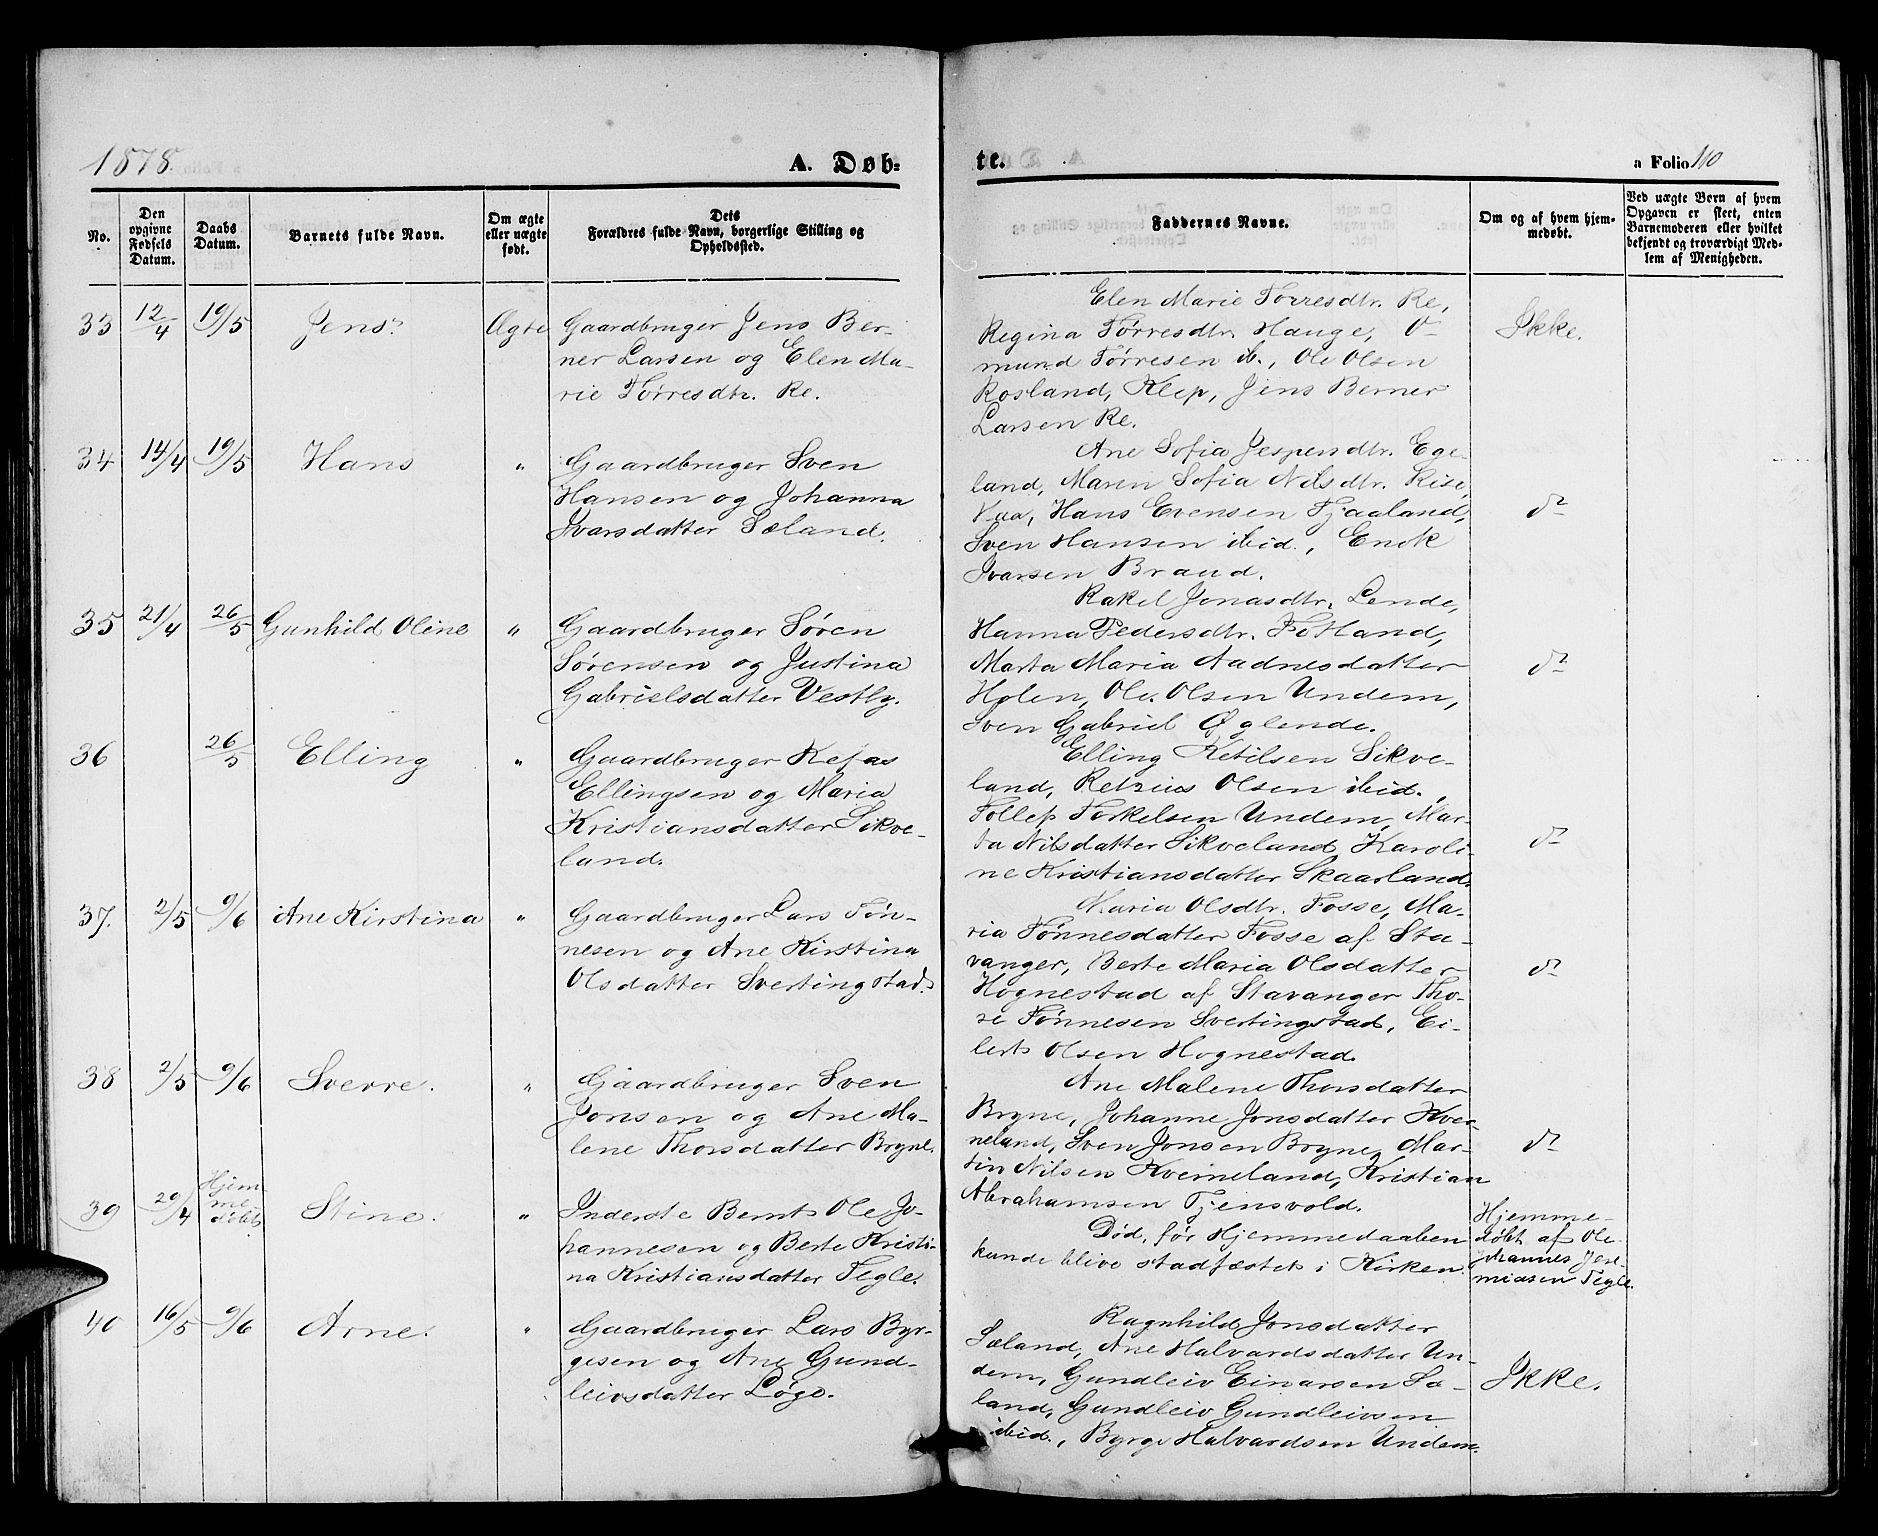 1878.
A. Døb-
te.
a Folio 110
No.
Den opgivne Fødsels Datum.
Daabs Datum.
Barnets fulde Navn.
Om ægte eller uægte født.
Dets Forældres fulde Navn, borgerlige Stilling og Opholdssted.
Faddernes Navne.
Om og af hvem hjem-medøbt.
Ved uægte Børn af hvem Opgaven er skeet, enten Barnemoderen eller hvilket bekjendt og troværdigt Med-lem af Menigheden.
33 12/4 19/5 Jens Ægte
Gaardbruger Jens Ber-
ner Larsen og Elen Ma-
rie Tørresdtr. Re.
Elen Marie Tørresdtr. Re,
Regina Tørresdtr. Hauge, O-
mund Tørresen ib., Ole Olsen
Rosland, Klep, Jens Berner
Larsen Re.
Ikke.
34 14/4 19/5 Hans "
Gaardbruger Sven
Hansen og Johanna
Ivarsdatter Sæland.
Ane Sofia Jespersdtr. Ege-
land, Maren Sofia Nilsdtr. Rise,
Hans Evensen Fjaaland,
Sven Hansen ibid.,
Ivarsen Braud.
do
35 21/4 26/5 Gunhild Oline "
Gaardbruger Søren
Sørensen og Justina
Gabrielsdatter Vestly.
Rakel Jonasdtr. Lende,
Hanna Pedersdtr. Fotland,
Marta Maria Aadnesdatter
Holen, Ole Olsen Undem,
Sven Gabriel Øglende.
do
36 26/5 Elling "
Gaardbruger Kefas
Ellingsen og Maria
Kristiansdatter Sikve-
land.
Elling Ketilsen Sikve-
land, Retzius Olsen ibid.,
Tollep Torkelsen Undem, Mar-
ta Nilsdatter Sikveland, Karoli-
ne Kristiansdatter Skaarland.
do
37. 2/5 9/6 Ane Kirstina "
Gaardbruger Lars Tøn-
nesen og Ane Kirstina
Olsdatter Svertingstad.
Maria Olsdtr. Fosse, Ma-
ria Tønnesdatter Fosse af Sta-
vanger, Berte Maria Olsdatter
Hognestad af Stavanger, Tho-
re Tønnesen Svertingstad, Ei-
lert Olsen Hognestad.
do
38 2/5 9/6 Sverre. "
Gaardbruger Sven
Jonsen og Ane Ma-
lene Thorsdatter Bryne.
Ane Malene Thorsdatter
Bryne, Johanne Jonsdatter Kver-
neland, Sven Jonsen Bryne, Mar-
tin Nilsen Kverneland, Kristian
Abrahamsen Tjensvold.
do
39 20/4 Hjem-
me
døbt Stine. "
Inderste Bernt Ole Jo-
hannesen og Berte Kristi-
na Kristiansdatter Tegle.
Død, før Hjemmedaaben
kunde blive stadfæstet i Kirken.
Hjemme-
døbt af Ole
Johannes Jere-
miasen Tegle.
40 16/5 9/6 Arne. "
Gaardbruger Lars Byr-
gesen og Ane Gund-
leivsdatter Løge.
Ragnhild Jonsdatter
Sæland, Ane Halvardsdatter Un-
dem, Gundleiv Einarsen Sæ-
land, Gundleiv Gundleivsen
ibid., Byrge Halvardsen Undem.
Ikke.